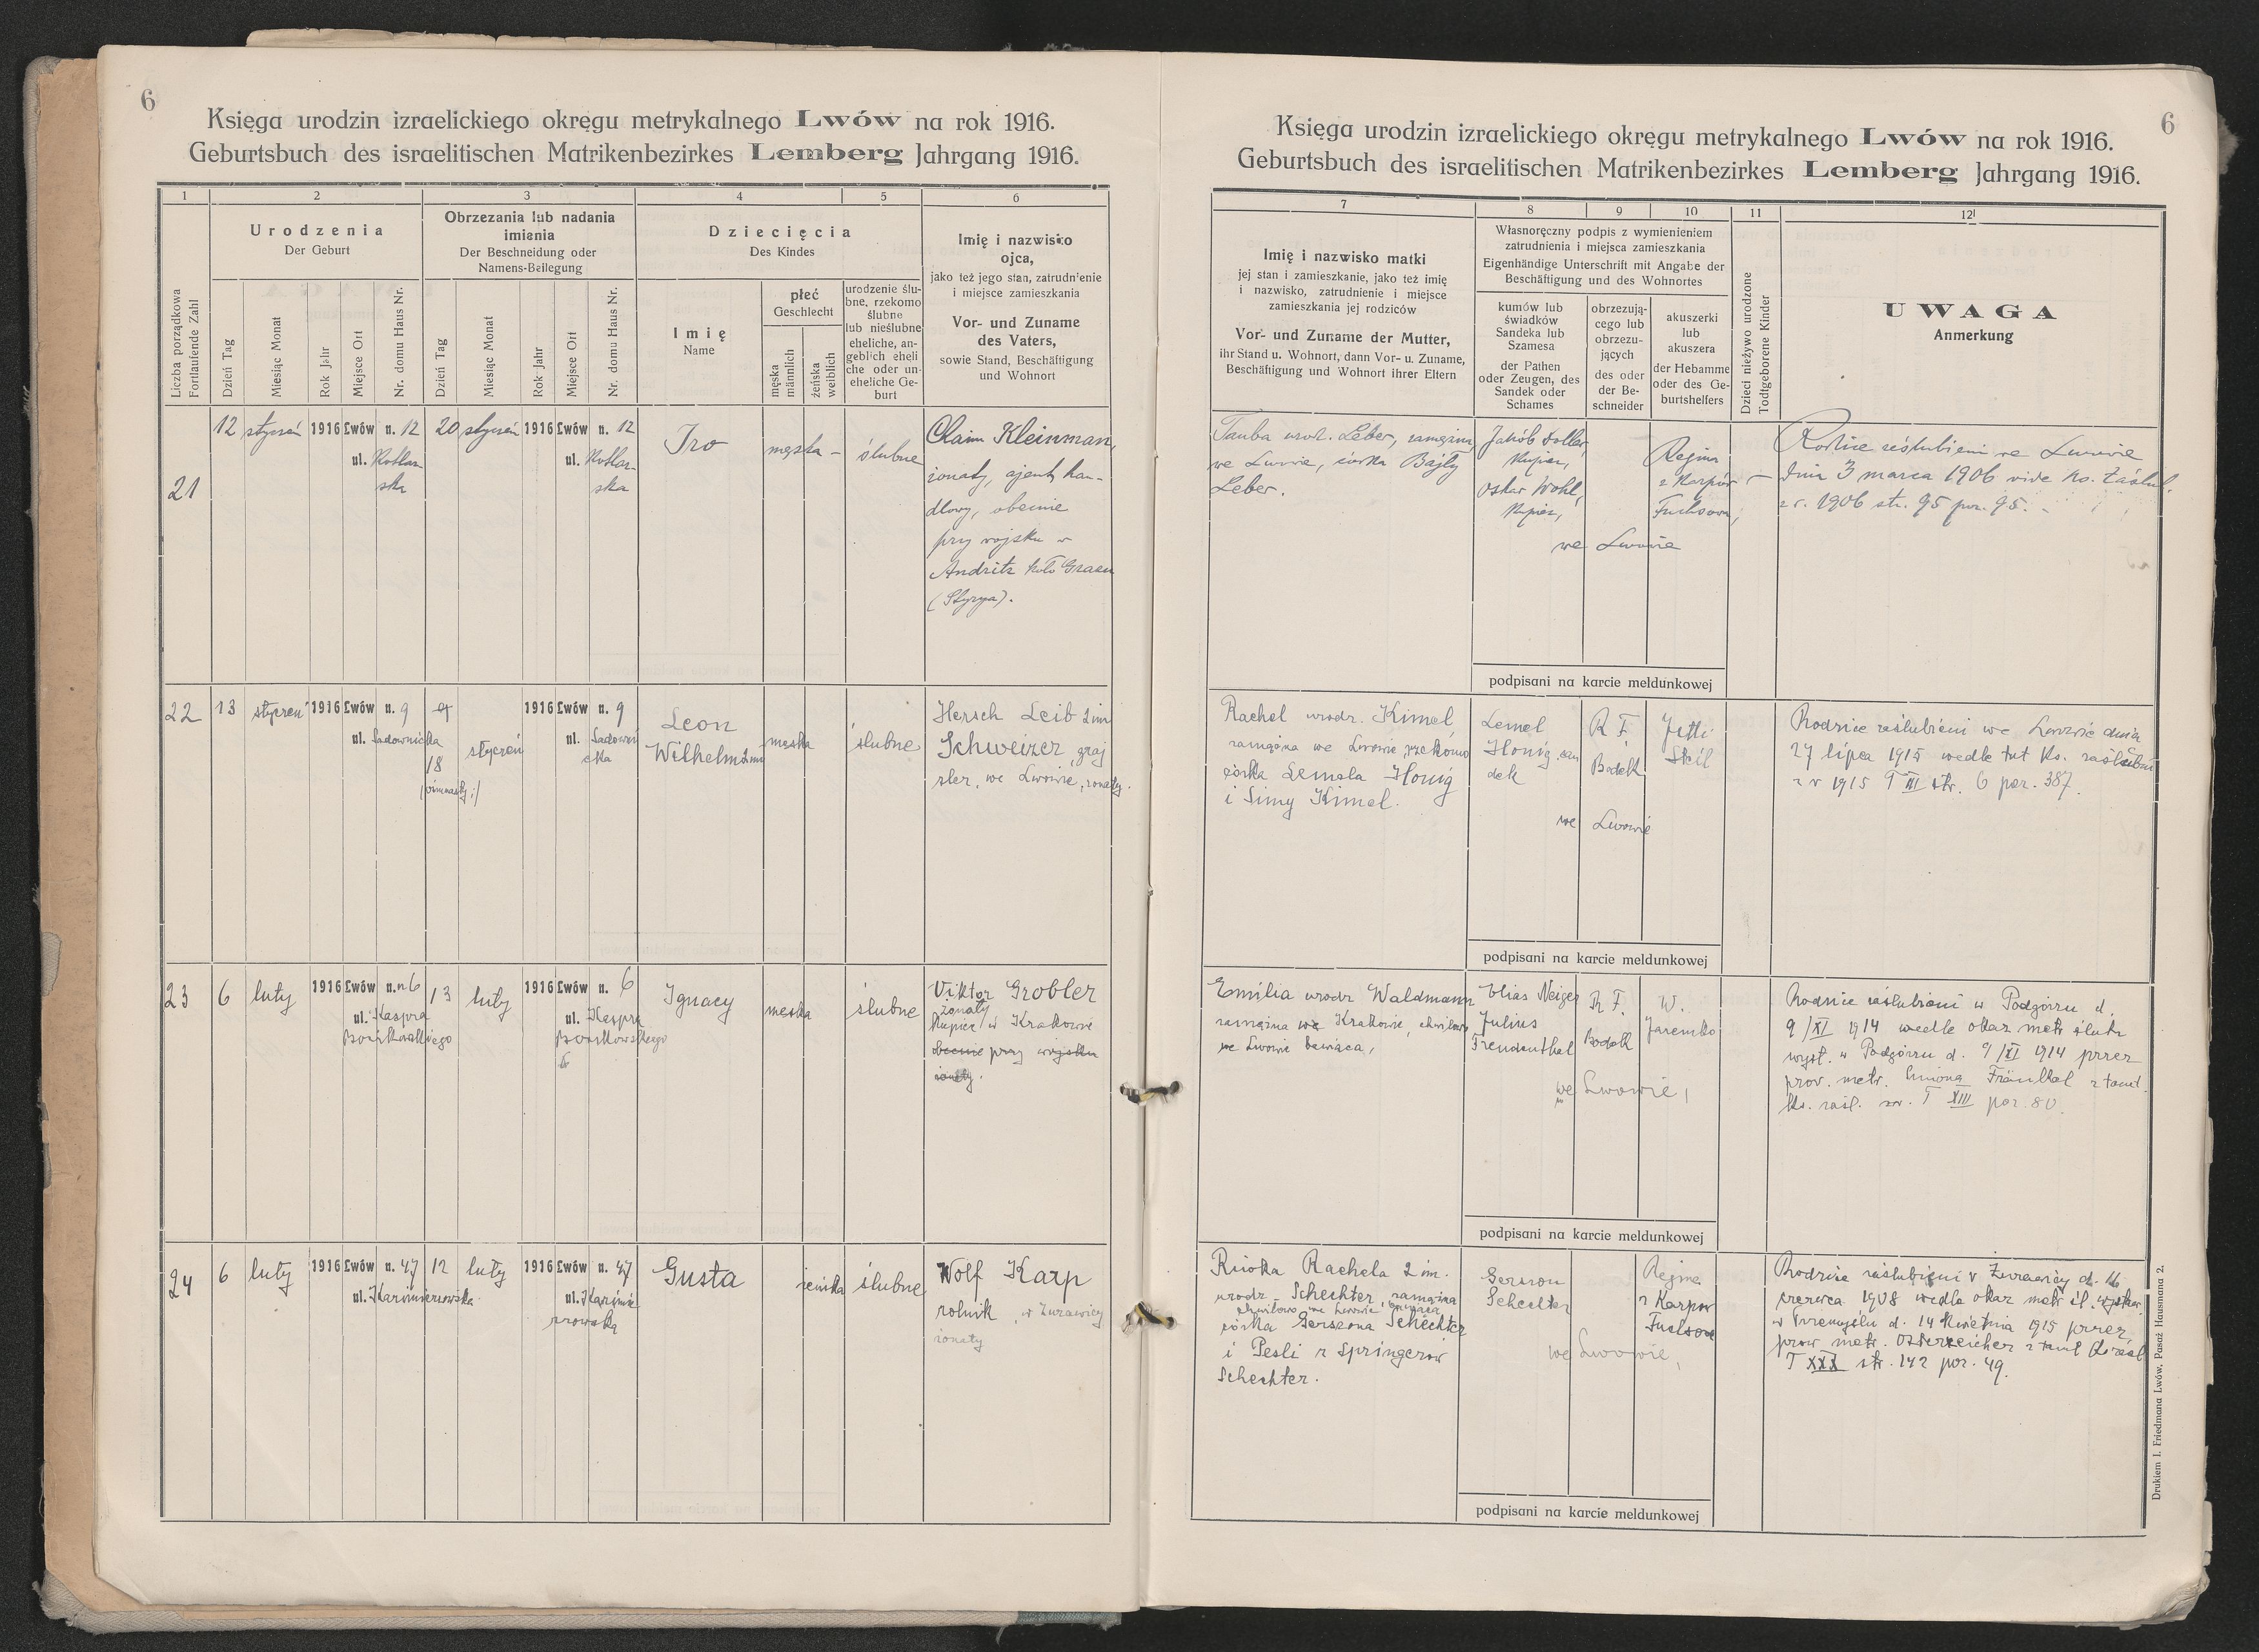 6
Księga urodzin izraelickiego okręgu metrykalnego Lwów na rok 1916.
Geburtsbuch des israelitischen Matrikenbezirkes Lemberg Jahrgang 1916.
1
2
3
4
5
6
Liczba porządkowa
Fortlaufende Zahl
Urodzenia
Der Geburt
Obrzezania lub nadania
imienia
Der Beschneidung oder
Namens-Beilegung
Dziecięcia
Des Kindes
Dzień Tag
Miesiąc Monat
Rok Jahr
Miejsce Ort
Nr. domu Haus Nr.
Dzień Tag
Miesiąc Monat
Rok Jahr
Miejsce Ort
Nr. domu Haus Nr.
Imię
Name
płeć
Geschlecht
męska
männlich
żeńska
weiblich
urodzenie ślu-
bne, rzekomo
ślubne
lub nieślubne
eheliche, an-
geblich eheli
che oder un-
eheliche Ge-
burt
Imię i nazwisko
ojca,
jako też jego stan, zatrudnienie
i miejsce zamieszkania
Vor- und Zuname
des Vaters,
sowie Stand, Beschäftigung
und Wohnort
21
12 styczeń 1916 Lwów n. 12
ul. Kotlar-
ska
20 styczeń 1916 Lwów n. 12
ul. Kotlar-
ska
Izo
męska -
ślubne
Chaim Kleinman,
żonaty, ajent han-
dlowy, obecnie
przy wojsku w
Andritz koło Grazu
(Styrya).
22
13 styczeń 1916 Lwów n. 9
ul. Sadownicka
18
styczeń 1916 Lwów n. 9
ul. Sadowni
cka
Leon
Wilhelm 2 im
męska
ślubne
Hersch Leib 2 im
Schweizer, graj
zler, we Lwowie, żonaty.
23
6 luty 1916 Lwów n. n 6
ul. Kaspra
Boczkowskiego
13 luty 1916 Lwów n. 6
ul. Kaspra
Boczkowskiego
6
Ignacy
męska
ślubne
Viktor Grobler
żonaty
kupiec w Krakowie
obecnie przy wojsku
żonaty.
24
6 luty 1916 Lwów n. 47
ul. Kazimierzowska
12 luty 1916 Lwów n. 47
ul. Kazimie
rzowska
Gusta
żeńska
ślubne
Wolf Karp
rolnik, w Żurawicy
żonaty
6
Księga urodzin izraelickiego okręgu metrykalnego Lwów na rok 1916.
Geburtsbuch des israelitischen Matrikenbezirkes Lemberg Jahrgang 1916.
7
8
9
10
11
12
Imię i nazwisko matki
jej stan i zamieszkanie, jako też imię
i nazwisko, zatrudnienie i miejsce
zamieszkania jej rodziców
Vor- und Zuname der Mutter,
ihr Stand u. Wohnort, dann Vor- u. Zuname,
Beschäftigung und Wohnort ihrer Eltern
Własnoręczny podpis z wymienieniem
zatrudnienia i miejsca zamieszkania
Eigenhändige Unterschrift mit Angabe der
Beschäftigung und des Wohnortes
kumów lub
świadków
Sandeka lub
Szamesa
der Pathen
oder Zeugen, des
Sandek oder
Schames
obrzezują-
cego lub
obrzezu-
jących
des oder
der Be-
schneider
akuszerki
lub
akuszera
der Hebamme
oder des Ge-
burtshelfers
Dzieci nieżywo urodzone
Todtgeborene Kinder
UWAGA
Anmerkung
Tauba urodz. Leber, zamężna
we Lwowie, córka Bajły
Leber.
Jakób
kupiec,
Oskar Wohl,
kupiec,
Regina
z Karpów
Fuchsowa,
we Lwowie
podpisani na karcie meldunkowej
—
Rodzice zaślubieni we Lwowie
dnia 3 marca 1906 vide ks. zaślub.
z r. 1906 str. 95 poz. 95.
Rachel urodz. Kimel
zamężna we Lwowie, rzekomo
córka Lemela Honig
i Simy Kimel.
Lemel
Honig, san
dek
R F.
Bodek
Jetti
Skil
we Lwowie
podpisani na karcie meldunkowej
Rodzice zaślubieni we Lwowie dnia
27 lipca 1915 wedle tut ks. zaślubin
z r 1915 T III str. 6 poz. 387.
Emilia urodz Waldmann
zamężna we Krakowie, chwilowo
we Lwowie bawiąca,
Elias Neiger
Julius
Freudenthal
R F.
Bodek
W.
Jaremko
we Lwowie,
podpisani na karcie meldunkowej
Rodzice zaślubieni w Podgórzu d.
9/XI 1914 wedle okaz metr ślub
wyst. w Podgórzu d. 9/XI 1914 przez
prov. metr. Simona Fränkel z tamt.
ks. zaśl. T XIII poz. 80.
Rachela 2 im.
urodz Schechter, zamężna
chwilowo we Lwowie bawiąca
córka Gerszona Schechter
i Pesli z Springerów
Schechter.
Gerszon
Schechter
Rejina
z Karpow
Fuchsowa
we Lwowie,
podpisani na karcie meldunkowej
Rodzice zaślubieni w Żurawicy d. 16
czerwca 1908 wedle okaz metr śl. wystaw.
w Przemyślu d. 14 kwietnia 1915 przez
prow metr. Osterreicher z tamt ks zaśl
T XXX str. 142 poz. 49.
Drukiem I. Friedmana Lwów, Pasaż Hausmana 2.